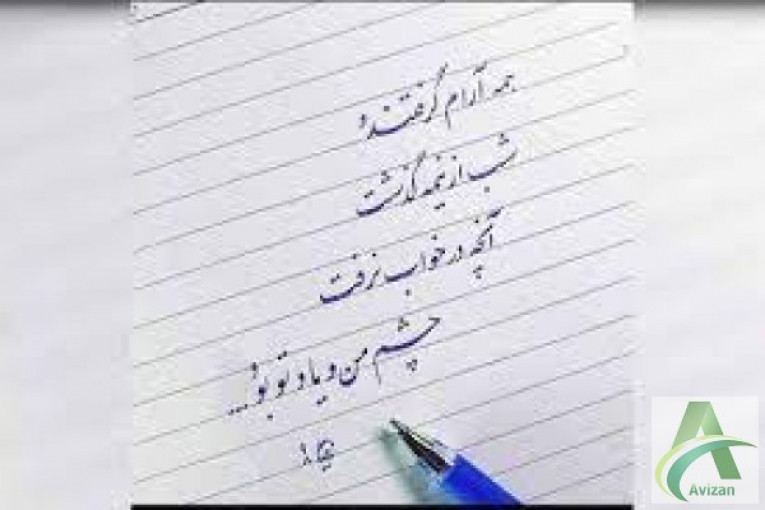 همه آرام گرفتند و
شب از نیمه گذشت
آنچه در خواب نرفت
چشم من و یاد تو بود...
Avizan